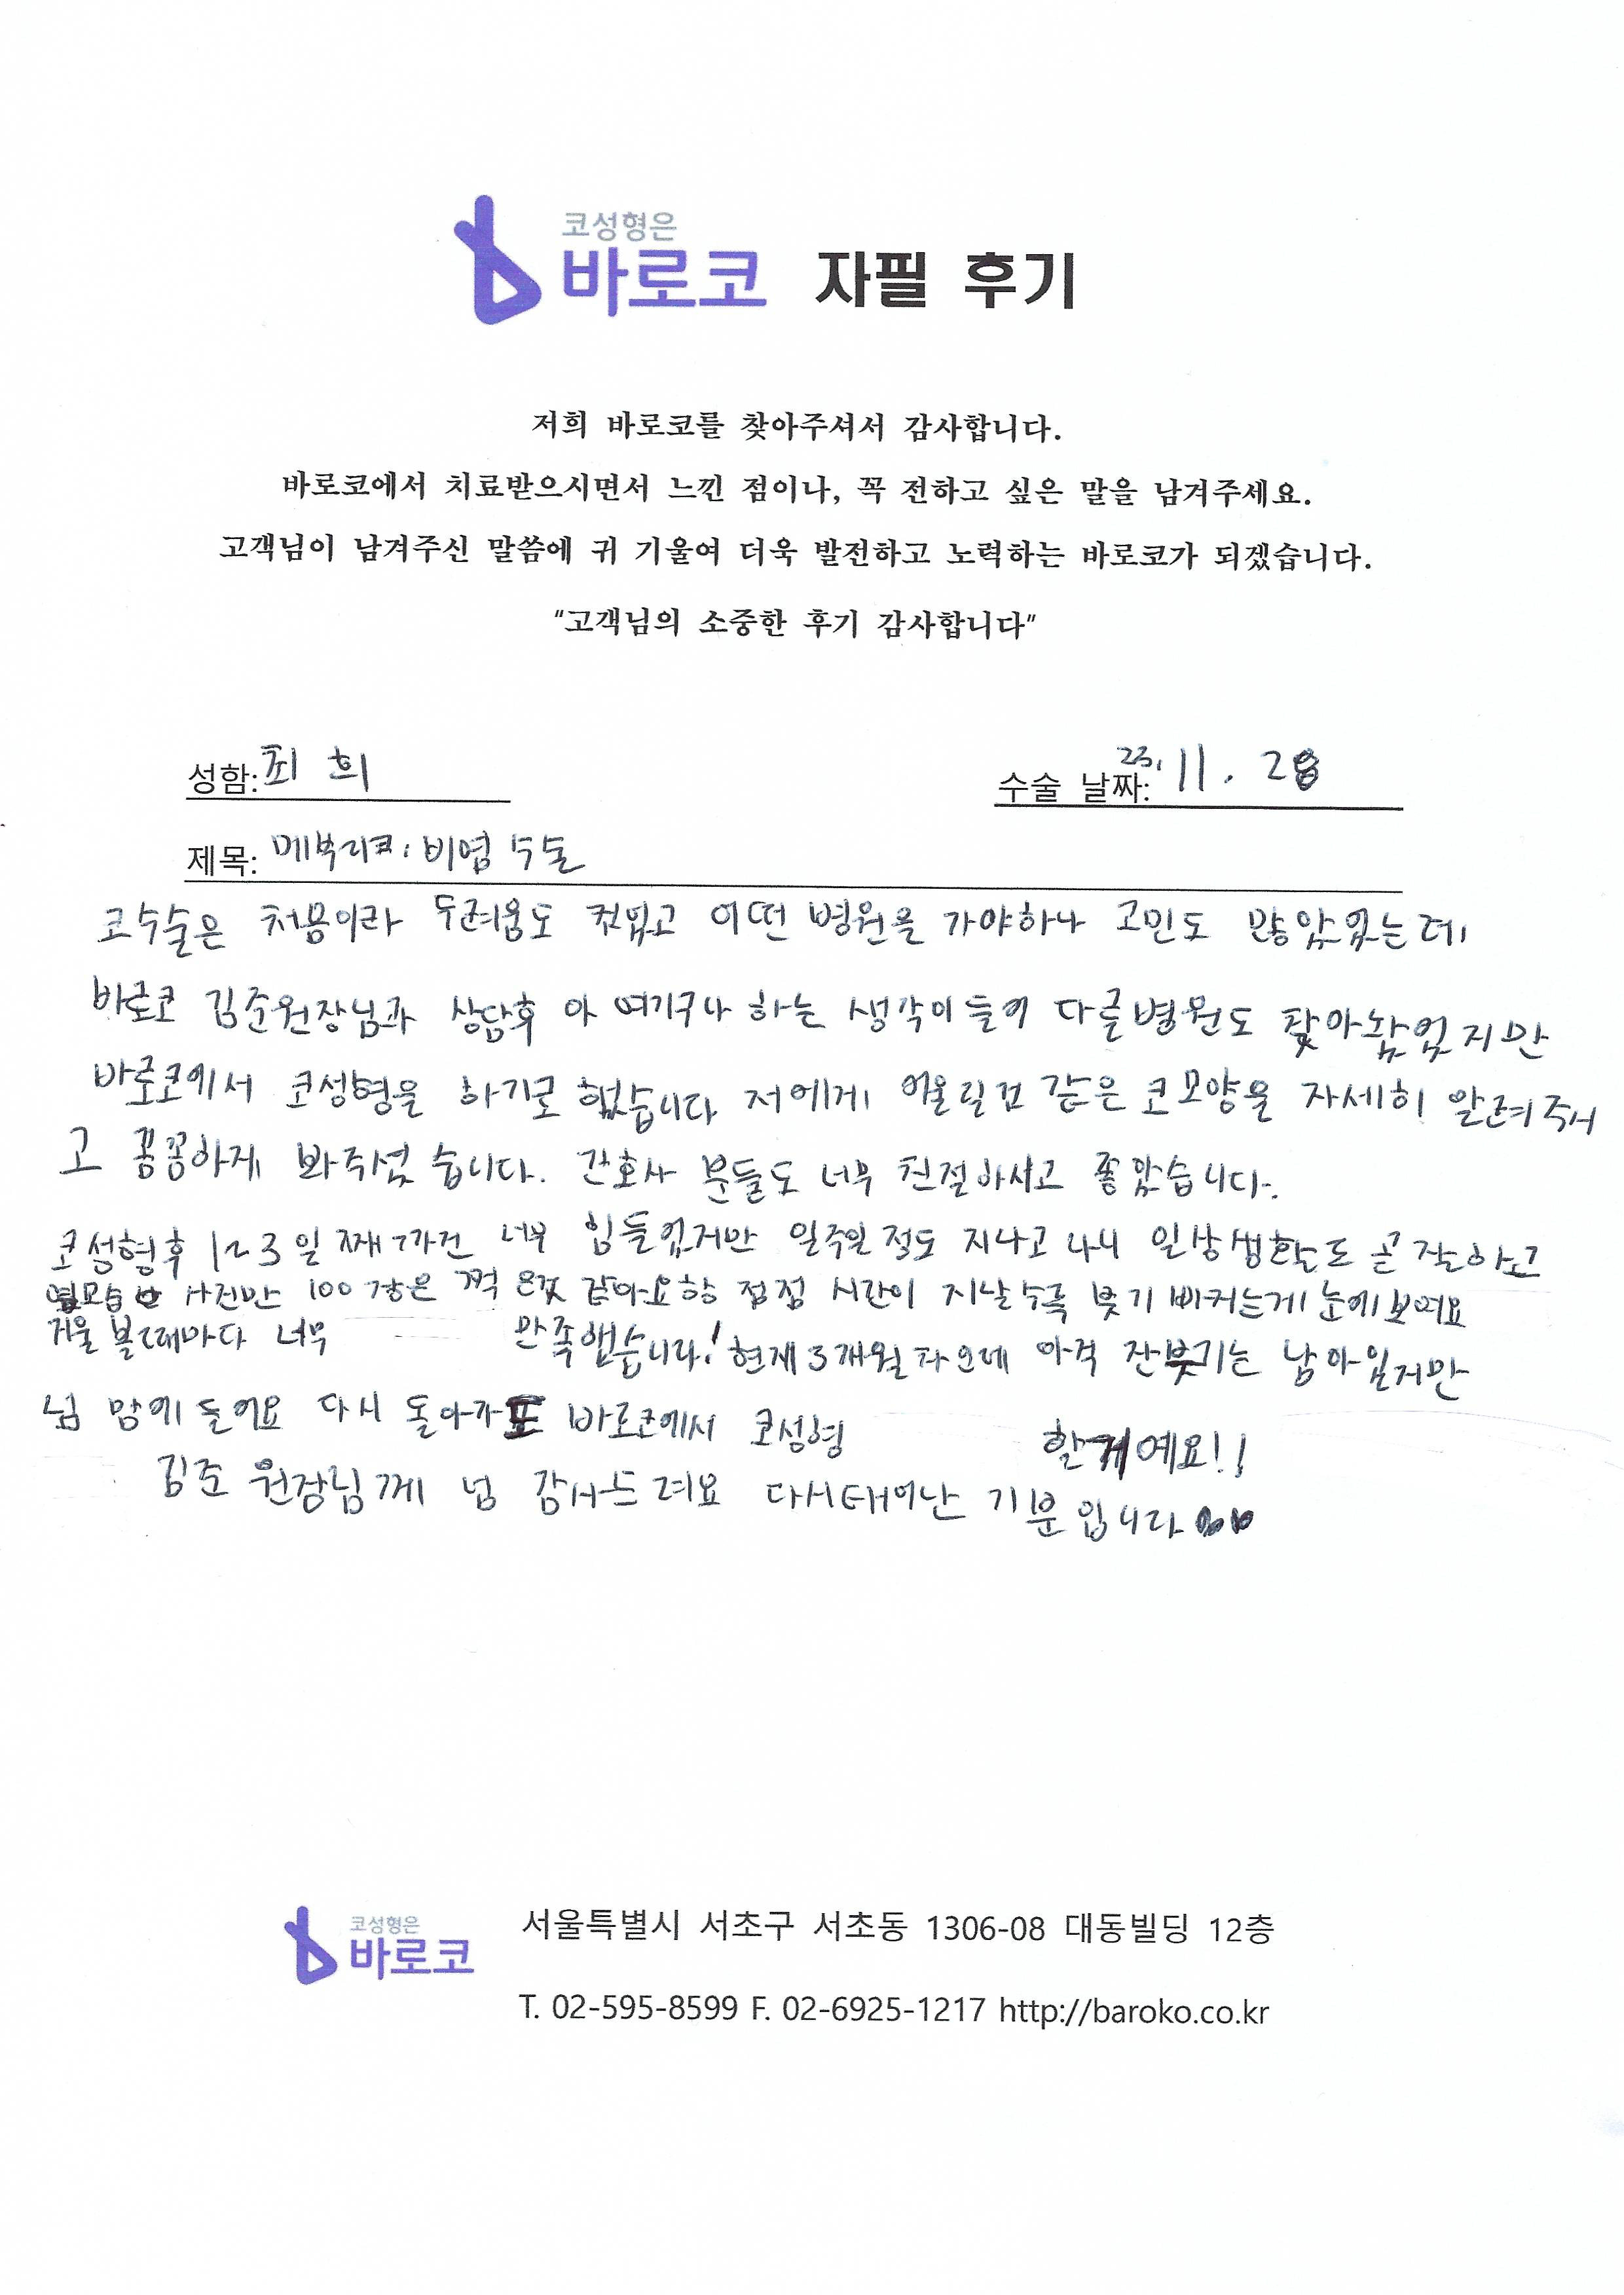 코성형은
바로코 자필 후기
저희 바로코를 찾아주셔서 감사합니다.
바로코에서 치료받으시면서 느낀 점이나, 꼭 전하고 싶은 말을 남겨주세요.
고객님이 남겨주신 말씀에 귀 기울여 더욱 발전하고 노력하는 바로코가 되겠습니다.
"고객님의 소중한 후기 감사합니다"
성함: 최 희 수술 날짜: 23. 11. 28
제목: 메부리코, 비염 수술
코수술은 처음이라 두려움도 컸었고 어떤 병원을 가야하나 고민도 많았었는데
바로코 김준원장님과 상담후 아 여기구나 하는 생각이 들어 다른병원도 찾아봤었지만
바로코에서 코성형을 하기로 했습니다 저에게 어울릴것 같은 코모양을 자세히 알려주시
고 꼼꼼하게 봐주셨습니다. 간호사 분들도 너무 친절하시고 좋았습니다.
코성형후 1~3일째까진 너무 힘들었지만 일주일 정도 지나고 나니 일상생활도 곧 잘하고
옆모습 사진만 100장은 찍은것 같아요 점점 시간이 지날수록 붓기 빠지는게 눈에보여요
거울 볼때마다 너무 만족했습니다! 현재 3개월차인데 아직 잔붓기는 남아있지만
넘 맘에 들어요 다시 돌아가도 바로코에서 코성형 할거예요!!
김준 원장님께 넘 감사드려요 다시태어난 기분입니다
코성형은
바로코
서울특별시 서초구 서초동 1306-08 대동빌딩 12층
T. 02-595-8599 F. 02-6925-1217 http://baroko.co.kr